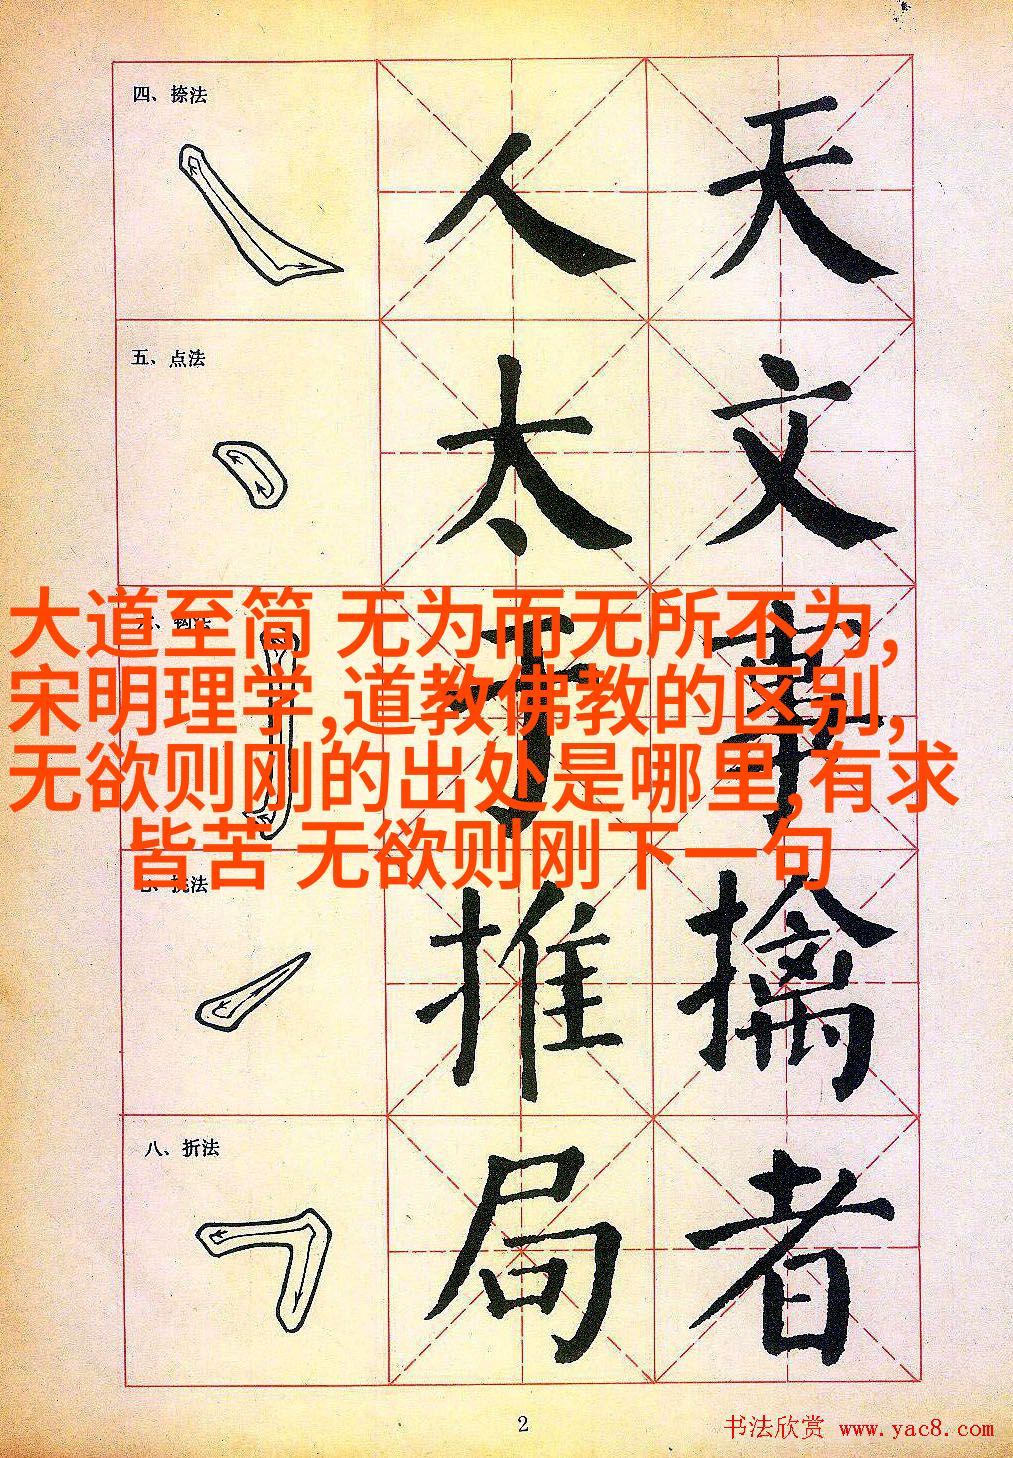 四、捺法
人 天
五、点法
太 文
大道至简 无为而无所不为,
宋明理学,道教佛教的区别,
无欲则刚的出处是哪里,有求
皆苦 无欲则刚下一句
推 擒
八、折法
局 者
2
书法欣赏 www.yac8.com